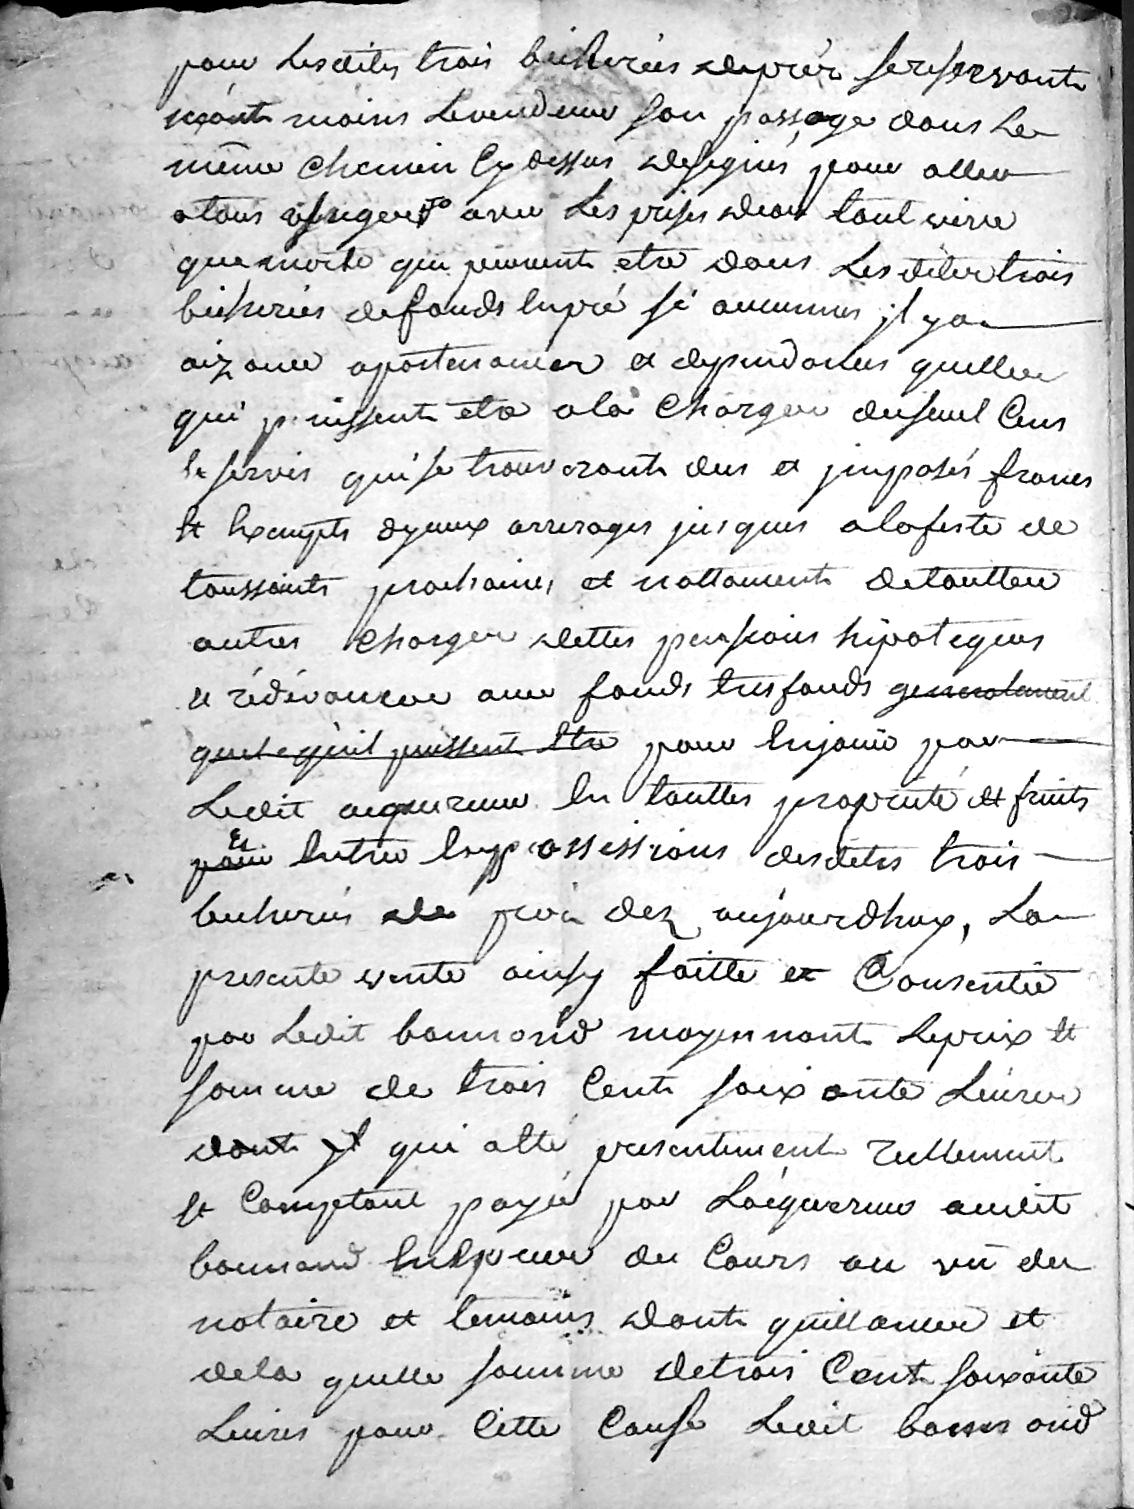 pour lesdites trois bicherées de pré, se reservant
neánt moins le vendeur son passage dans le
même chemin cy dessus designé pour aller
a tous usages avec les prises deau tant vive
que morte qui peuvent etre dans les dites trois
bicherées de fonds en pré si aucunnes jl y a
aizance apartenances et dependances quelles
qui puissent etre a la charge du seul cens
et servis qui se trouveront dus et jmposés francs
et Exempts dyceux arrerages jusques a la feste de
toussaints prochaines et nottament de touttes
autres charges dettes pensions hipoteques
et rédévances avec fonds tres fonds generalement
quelsquil puissent Etre pour En jouir par
Ledit acquereur En touttes proprieté et fruits
pour Et Entrer En possessions desdites trois
bicherées de pré dez aujourdhuy, La
presente vente ainsy faitte et Consentie
par Ledit bonnand moyennant le prix et
somme de trois Cent soixante Livres
dont jl qui a eté presentement reellement
et Comptant payée par Lacquereur audit
bonnand En Especes du Cours au vû du
notaire et temoins dont quittance et
de la quelle somme de trois Cent soixante
Livres pour Cette Cause Ledit bonnand